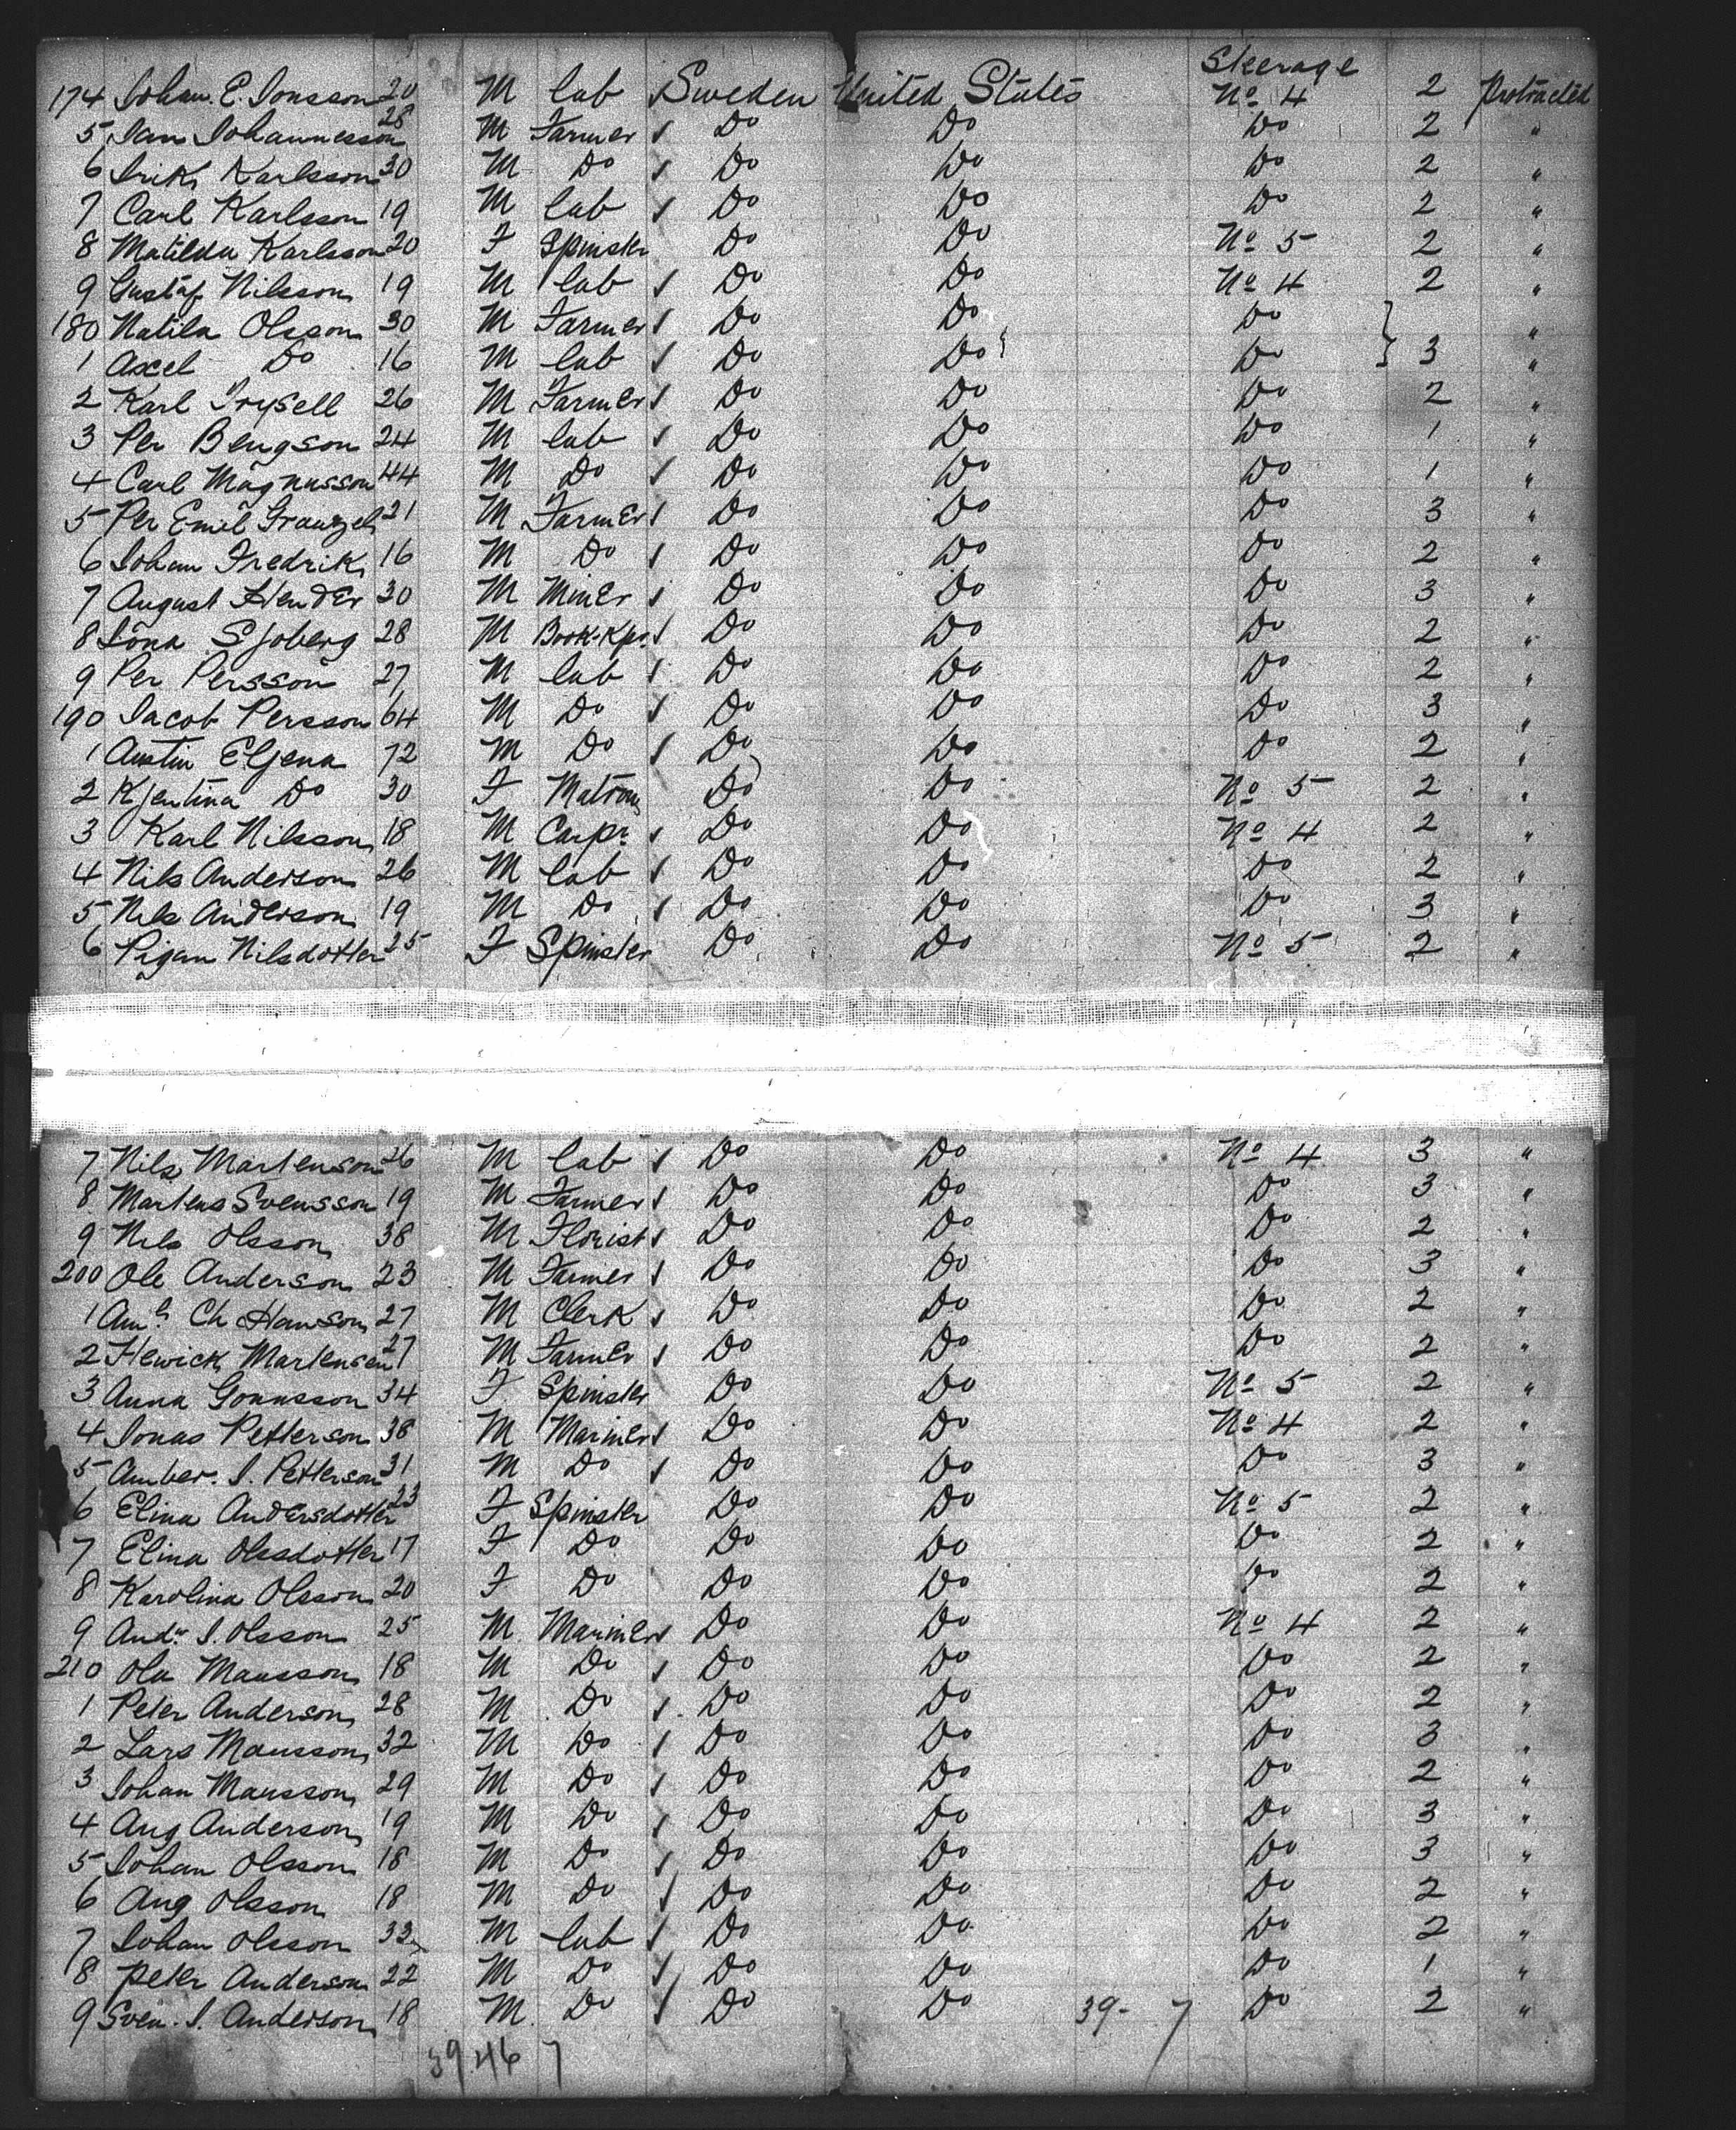 Steerage
174 Johan. E. Jonsson 20 M lab Sweden United States No 4 2 Protracted
5 Jan Johannesson 28 M Farmer Do Do Do 2 "
6 Erik Karlsson 30 M Do Do Do Do 2 "
7 Carl Karlsson 19 M lab Do Do Do 2 "
8 Matilda Karlsson 20 F Spinster Do Do No 5 2 "
9 Gustaf Nilsson 19 M lab Do Do No 4 2 "
180 Natila Olsson 30 M Farmer Do Do Do "
1 Axel Do 16 M lab Do Do Do 3 "
2 Karl Frysell 26 M Farmer Do Do Do 2 "
3 Per Bengson 24 M lab Do Do Do 1 "
4 Carl Magnusson 44 M Do Do Do Do 1 "
5 Per Emil 21 M Farmer Do Do Do 3 "
6 Johan Fredrik 16 M Do Do Do Do 2 "
7 August Hender 30 M Miner Do Do Do 3 "
8 Sjoberg 28 M Book-Kpr Do Do Do 2 "
9 Per Persson 27 M lab Do Do Do 2 "
190 Jacob Persson 64 M Do Do Do Do 3 "
1 Austin Eljena 72 M Do Do Do Do 2 "
2 Kjentina Do 30 F Matron Do Do No 5 2 "
3 Karl Nilsson 18 M Carpr Do Do No 4 2 "
4 Nils Anderson 26 M lab Do Do Do 2 "
5 Nils Anderson 19 M Do Do Do Do 3 "
6 Pigan Nilsdotter 25 F Spinster Do Do No 5 2 "
7 Nils Martenson 26 M lab Do Do No 4 3 "
8 Martens Svensson 19 M Farmer Do Do Do 3 "
9 Nils Olsson 38 M Florist Do Do Do 2 "
200 Ole Anderson 23 M Farmer Do Do Do 3 "
1 Ch Hanson 27 M Clerk Do Do Do 2 "
2 Hewick Martensen 27 M Farmer Do Do Do 2 "
3 Anna Gonnsson 34 F Spinster Do Do No 5 2 "
4 Jonas Petterson 38 M Mariner Do Do No 4 2 "
5 Amber. J. Petterson 31 M Do Do Do Do 3 "
6 Elina Andersdotter 23 F Spinster Do Do No 5 2 "
7 Elina Olssdotter 17 F Do Do Do Do 2 "
8 Karolina Olsson 20 F Do Do Do Do 2 "
9 Andw J. Olsson 25 M Mariner Do Do No 4 2 "
210 Ola Mansson 18 M Do Do Do Do 2 "
1 Peter Anderson 28 M Do Do Do Do 2 "
2 Lars Mansson 32 M Do Do Do Do 3 "
3 Johan Mansson 29 M Do Do Do Do 2 "
4 Aug Anderson 19 M Do Do Do Do 3 "
5 Johan Olsson 18 M Do Do Do Do 3 "
6 Aug Olsson 18 M Do Do Do Do 2 "
7 Johan Olsson 32 M lab Do Do Do 2 "
8 Peter Anderson 22 M Do Do Do Do 1 "
9 Sven. J. Anderson 18 M Do Do Do 39- 7 Do 2 "
39 46 7